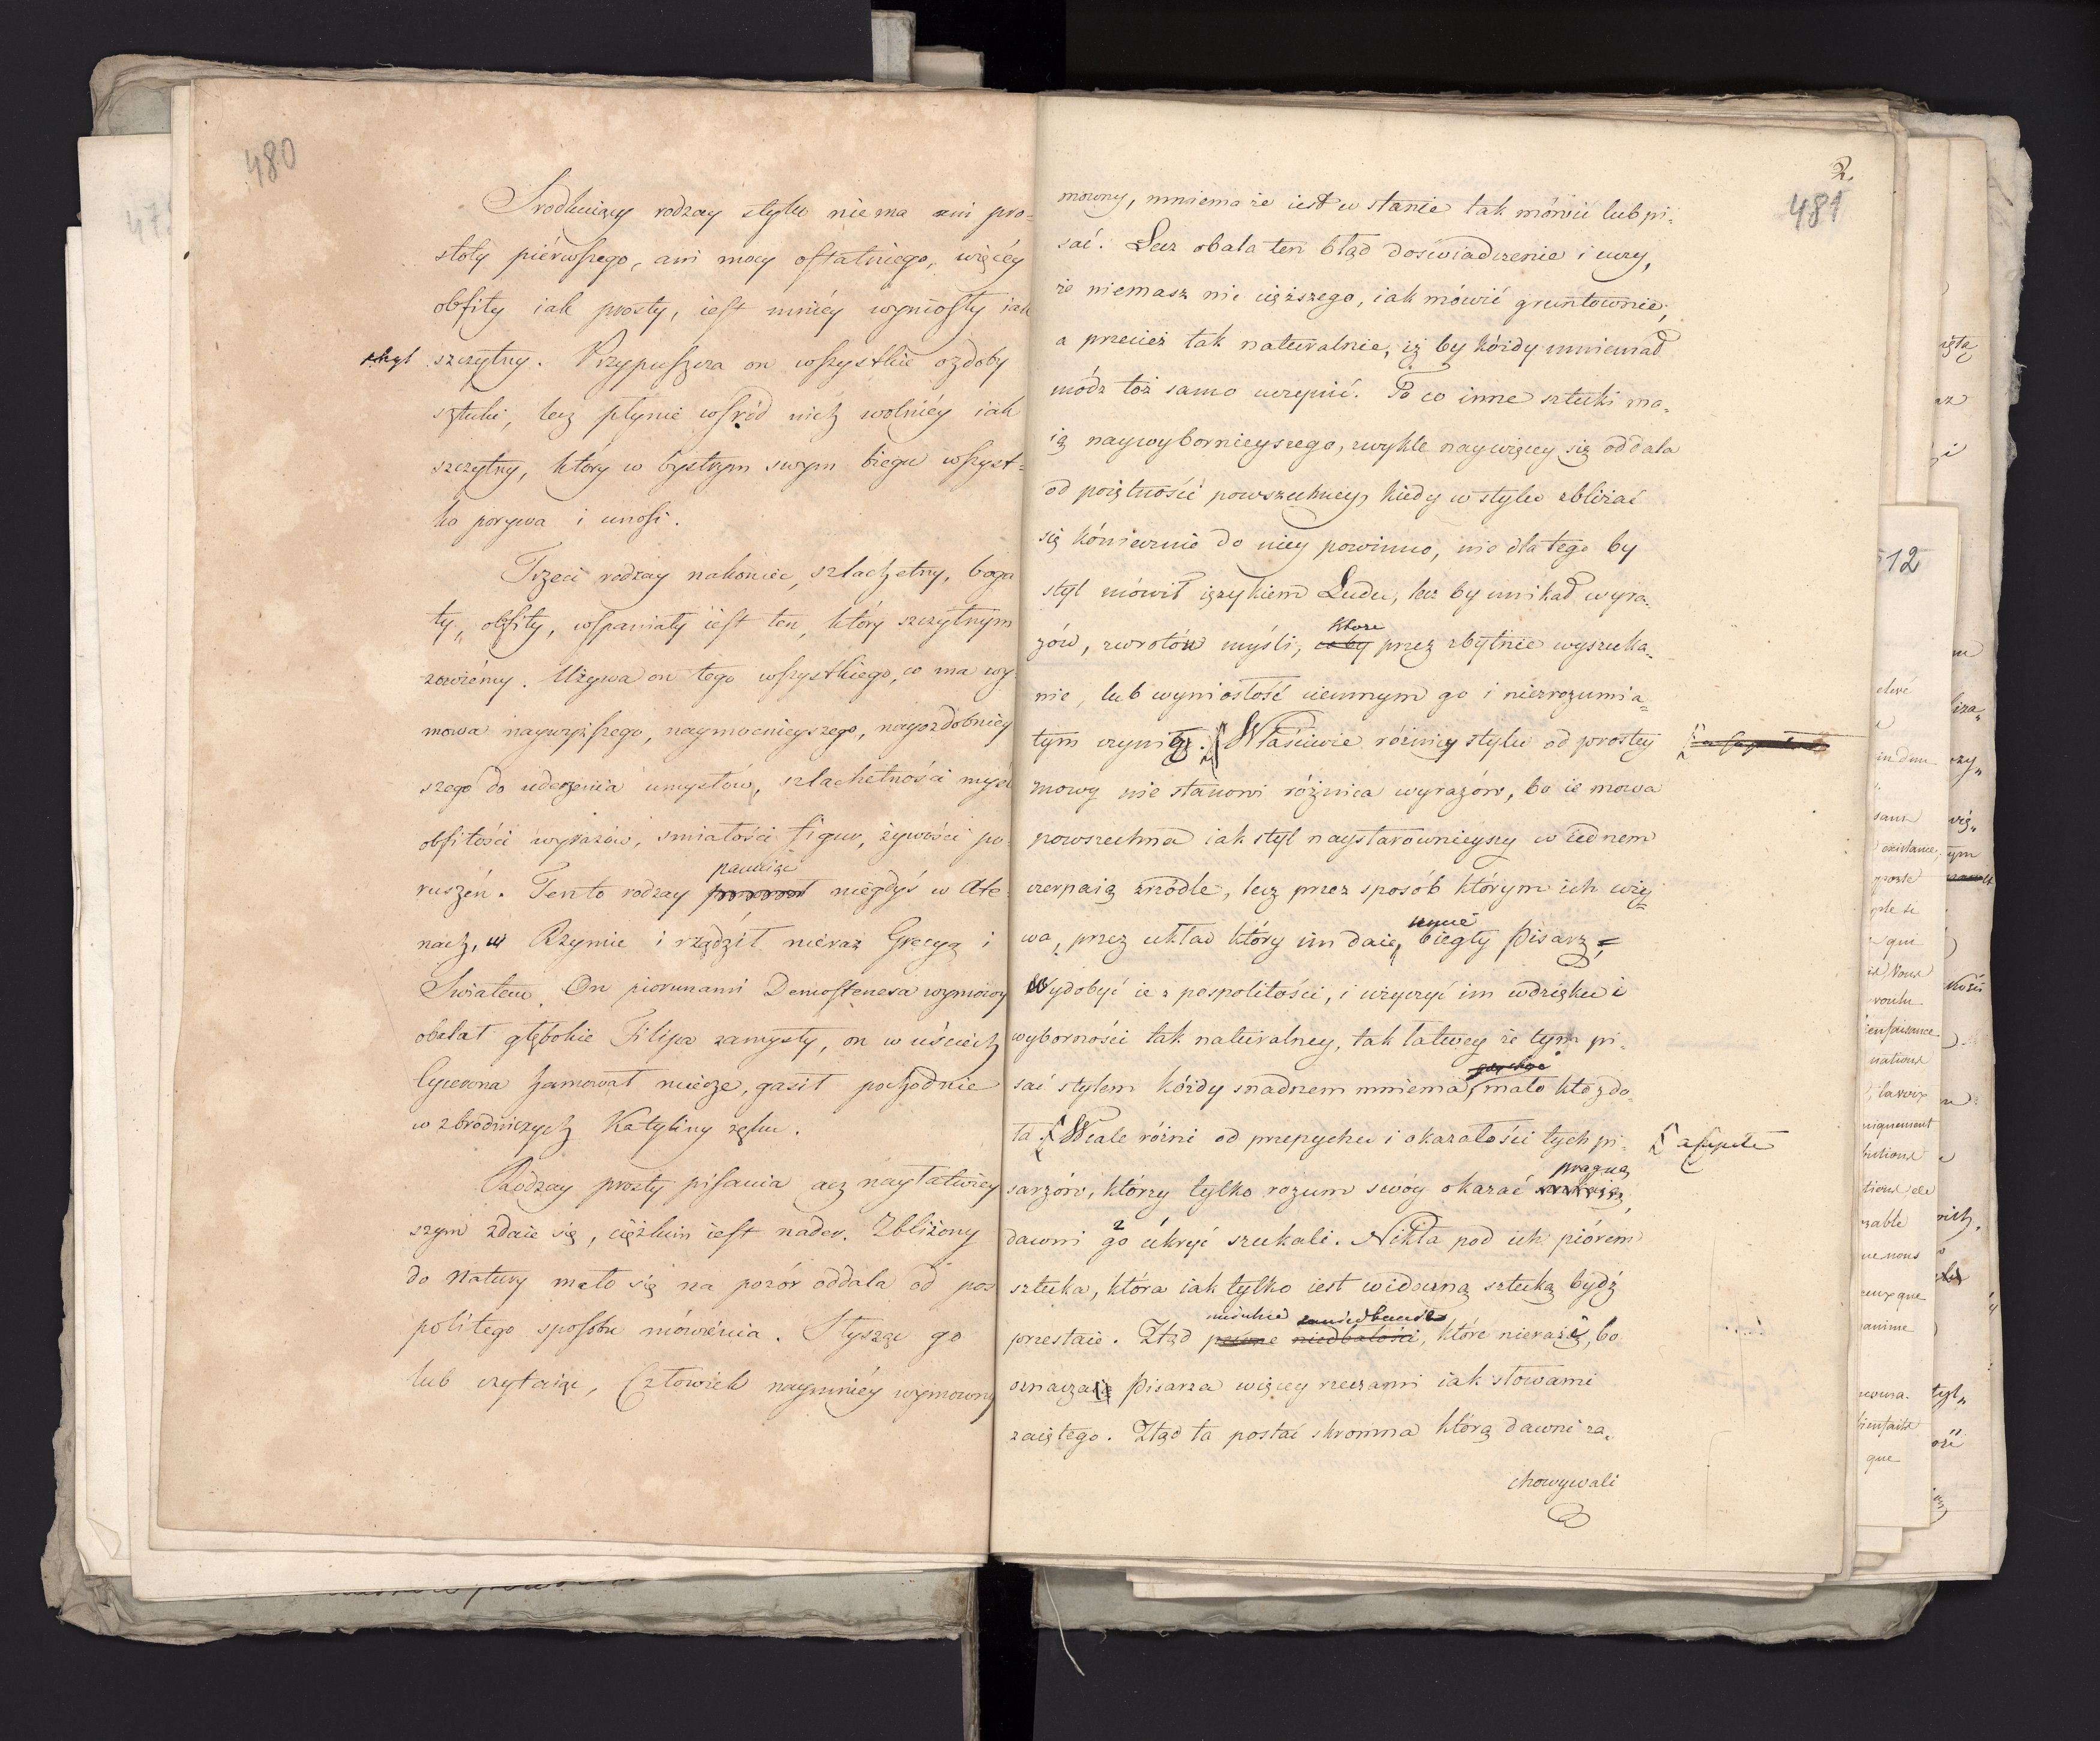 480
Srodkuiący rodzay stylu nie ma ani pro=
stoty piérwszego, ani mocy ostatniego, więcéy
obfity iak prosty, iest mniéy wyniosły iak
styl szczytny. Przypuszcza on wszystkie ozdoby
sztuki, lecz płynie wśród nich wolniéy iak
szczytny, który w bystrzym swym biegu wszyst=
ko porywa i unosi.
Trzeci rodzay nakoniec, szlachetny, boga
ty, obfity, wspaniały iest ten, który szczytnym
zowiémy. Używa on tego wszystkiego, co ma wy
mowa naywyższego, naymocnieyszego, nayozdobniey
szego do uderzenia umysłów, szlachetności myśli
obfitości wyrazów, smiałości figur, żywości po
ruszeń. Tento rodzay
panuiąc
niegdyś w Ate
nach, w Rzymie i rządził nieraz Grecyą i
Swiatem. On piorunami Demostenesa wymowy
obalał głębokie Filipa zamysły, on w uściech
Cycerona hamował miecze, gasił pochodnie
w zbrodniczych Katyliny ręku.
Rodzay prosty pisania acz nayłatwiey
szym zdaie się, ciężkim iest nader. Zbliżony
do Natury mało się na pozór oddala od pos
politego sposobu mówienia. Słysząc go
lub czytaiąc, Człowiek naymniéy wymowny
2.
481
mowny, mniema że iest w stanie tak mówić lub pi=
sać. Lecz obala ten błąd doświadczenie i uczy,
że niemasz nic cięższego, iak mówić gruntownie,
a przecież tak naturalnie, iż by każdy mniemał
módz toż samo uczynić. To co inne sztuki ma=
ią naywybornieyszego, zwykle naywięcey się oddala
od poiętności powszechney, kiedy w stylu zbliżać
się koniecznie do niey powinno, nie dla tego by
styl mówił ięzykiem Ludu, lecz by unikał wyra=
zów, zwrotów myśli,
ktore
co by przez zbytnie wyszuka=
nie, lub wyniosłość ciemnym go i niezrozumia=
łym czynią. Właściwie różnicy stylu od prostey
mowy nie stanowi różnica wyrazów, bo ie mowa
powszechna iak styl naystarownieyszy w iednem
czerpaią zrzódle, lecz przez sposób którym ich uży=
wa, przez układ który im daie,
umie
biegły Pisarz
Wydobyć ie z pospolitości, i użyczyć im wdzięku i
wyborności tak naturalney, tak łatwey że tym pi=
sać stylem każdy snadnem mniema, mało kto zdo=
ła Wcale różni od przepychu i okazałości tych pi=
a capite
sarzów, którzy tylko rozum swóy okazać
pragną,
dawni go ukryć szukali. Nikła pod ich piórem
sztuka, która iak tylko iest widoczną sztuką bydź
przestaie. Ztąd pewne niedbałości, które nierażą, bo
zaniedbanie
oznaczaią Pisarza więcey rzeczami iak słowami
zaiętego. Ztąd ta postać skromna którą dawni za=
chowywali
512